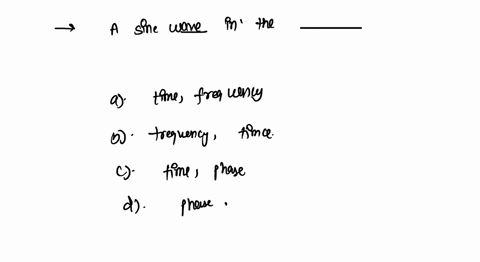 → A sine wave in the ______
a). time, frequency
b). frequency, time.
c). time, phase
d). phase .